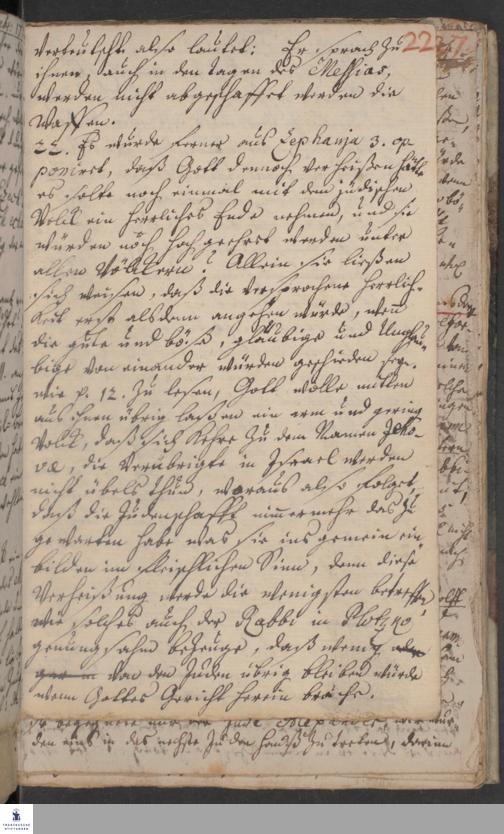 verteutscht also lautet: Er sprach zu
ihnen, auch in den tagen des Messias,
werden nicht abgeschaffet werden die
Waffen.
22. Es wurde ferner aus Zephanja 3. op-
poniret, daß Gott dennoch verheißen hätte
es solte noch einmal mit dem jüdischen
Volck ein herrliches Ende nehmen, und sie
würden noch hoch geehret werden unter
allen Völckern? Allein sie ließen
sich weisen, daß die versprochene Herrlich-
keit erst alsdenn angehen würde, wen
die gute und böse, gläubige und Unglau-
bige von einander würden geschieden seyn.
wie p. 12. zu lesen, Gott wolle mitten
aus ihnen übrig laßen ein arm und gering
Volck, daß sich kehre zu dem Namen Jeho-
væ, die Verübrigte in Israel werden
nicht übels thun, woraus also folget,
daß die Judenschafft nimmermehr das zu
gewarten habe was sie ins gemein ein
bilden im fleischlichen Sinn, denn diese
Verheißung werde die wenigsten betreffen
wie solches auch der Rabbi in Plotzko
genungsahm bezeuge, daß wenig
von den Juden übrig bleiben würde
wenn Gottes Gericht herein breche.
begegnete mir der Jude
den eins in das nechste Juden Hauß zu treten, darinn
FRANCKESCHE
STIFTUNGEN